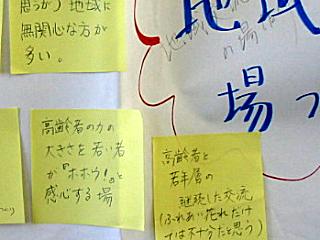 思うが）地域に
無関心な方が
多い。
地域
の場
場つ
高齢者の力の
大きさを若い者
が『ホホウ！』と
感心する場
高齢者と
若年層の
継続した交流
（ふれあい花れだけ
では不十分だと思う）